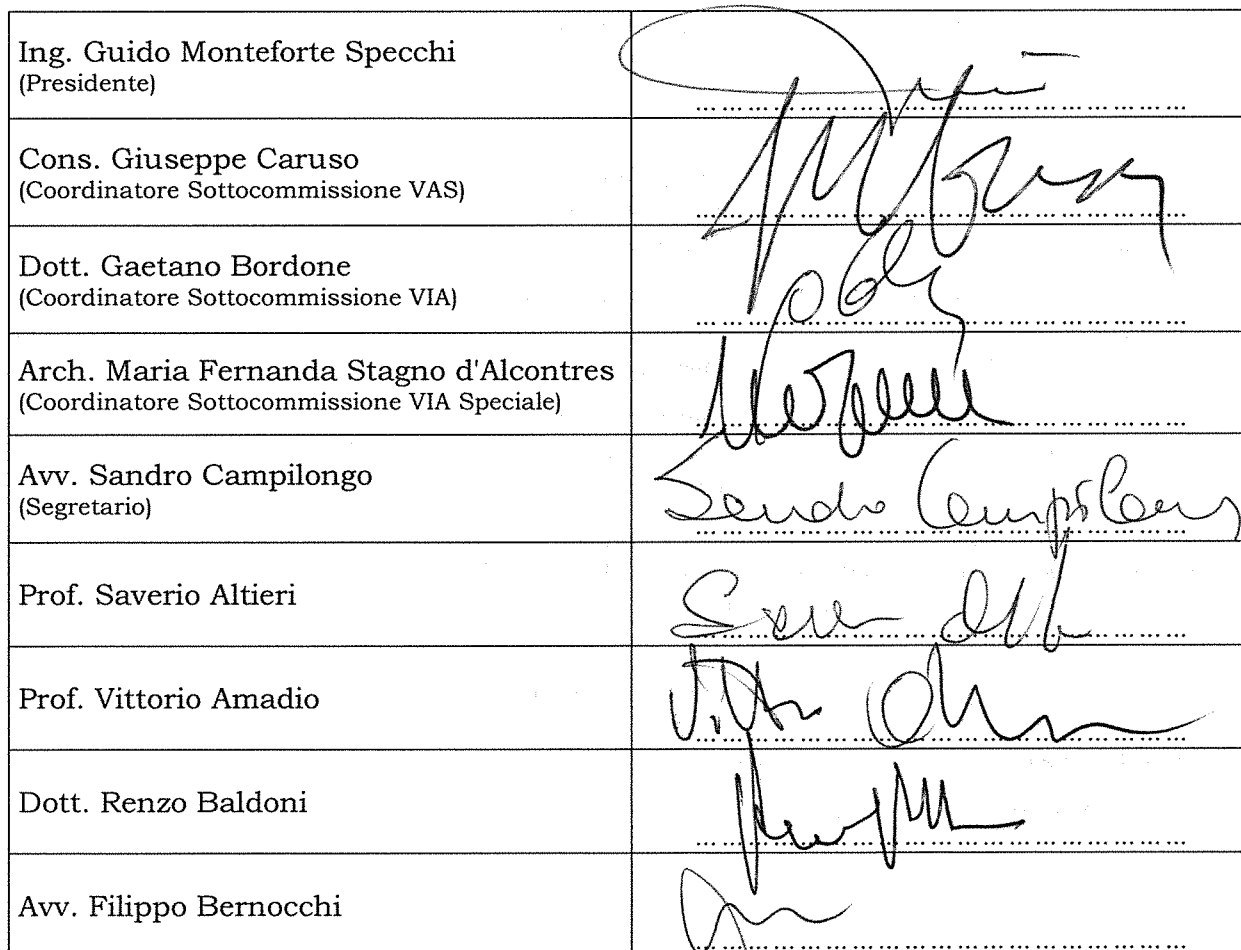 Ing. Guido Monteforte Specchi
(Presidente)
Cons. Giuseppe Caruso
(Coordinatore Sottocommissione VAS)
Dott. Gaetano Bordone
(Coordinatore Sottocommissione VIA)
Arch. Maria Fernanda Stagno d'Alcontres
(Coordinatore Sottocommissione VIA Speciale)
Avv. Sandro Campilongo
(Segretario)
Sandro Campilongo
Prof. Saverio Altieri
Prof. Vittorio Amadio
Dott. Renzo Baldoni
Avv. Filippo Bernocchi